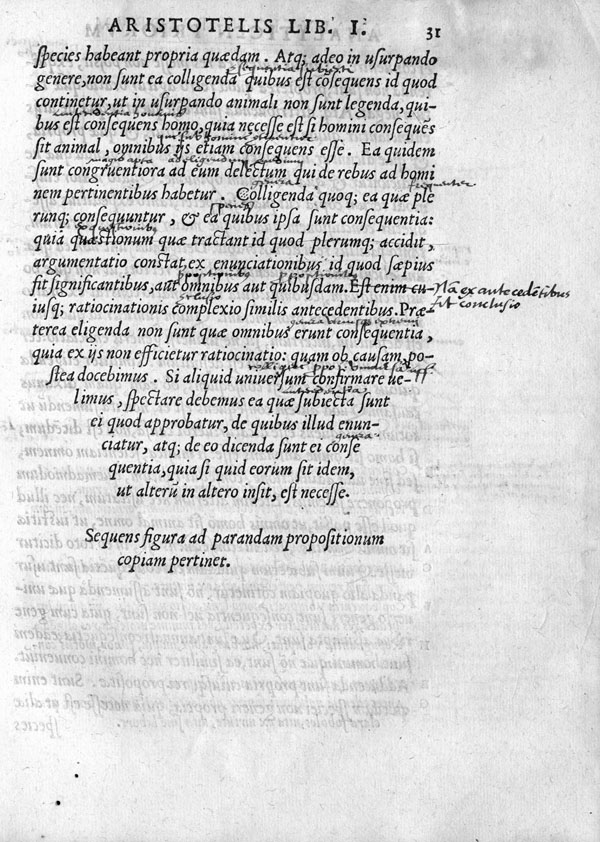 ARISTOTELIS LIB. I. 31
species habeant propria quædam. Atq; adeo in usurpando
genere, non sunt ea colligenda quibus est cōsequens id quod
continetur, ut in usurpando animali non sunt legenda, qui-
bus est consequens homo, quia necesse est si homini consequēs
sit animal, omnibus ijs etiam consequens esse. Ea quidem
sunt congruentiora ad eum delectum qui de rebus ad homi
nem pertinentibus habetur. Colligenda quoq; ea quæ ple
runq; consequuntur, & ea quibus ipsa sunt consequentia:
quia quæstionum quæ tractant id quod plerumq; accidit,
argumentatio constat, ex enunciationibus id quod sæpius
fit significantibus, aut omnibus aut quibusdam. Est enim cu-
iusq; ratiocinationis complexio similis antecedentibus. Præ-
Nā ex antecedētibus
fit conclusio
terea eligenda non sunt quæ omnibus erunt consequentia,
quia ex ijs non efficietur ratiocinatio: quam ob causam, po-
stea docebimus. Si aliquid universunt confirmare ue-
limus, spectare debemus ea quæ subiecta sunt
ei quod approbatur, de quibus illud enun-
ciatur, atq; de eo dicenda sunt ei conse
quentia, quia si quid eorum sit idem,
ut alterū in altero insit, est necesse.
Sequens figura ad parandam propositionum
copiam pertinet.